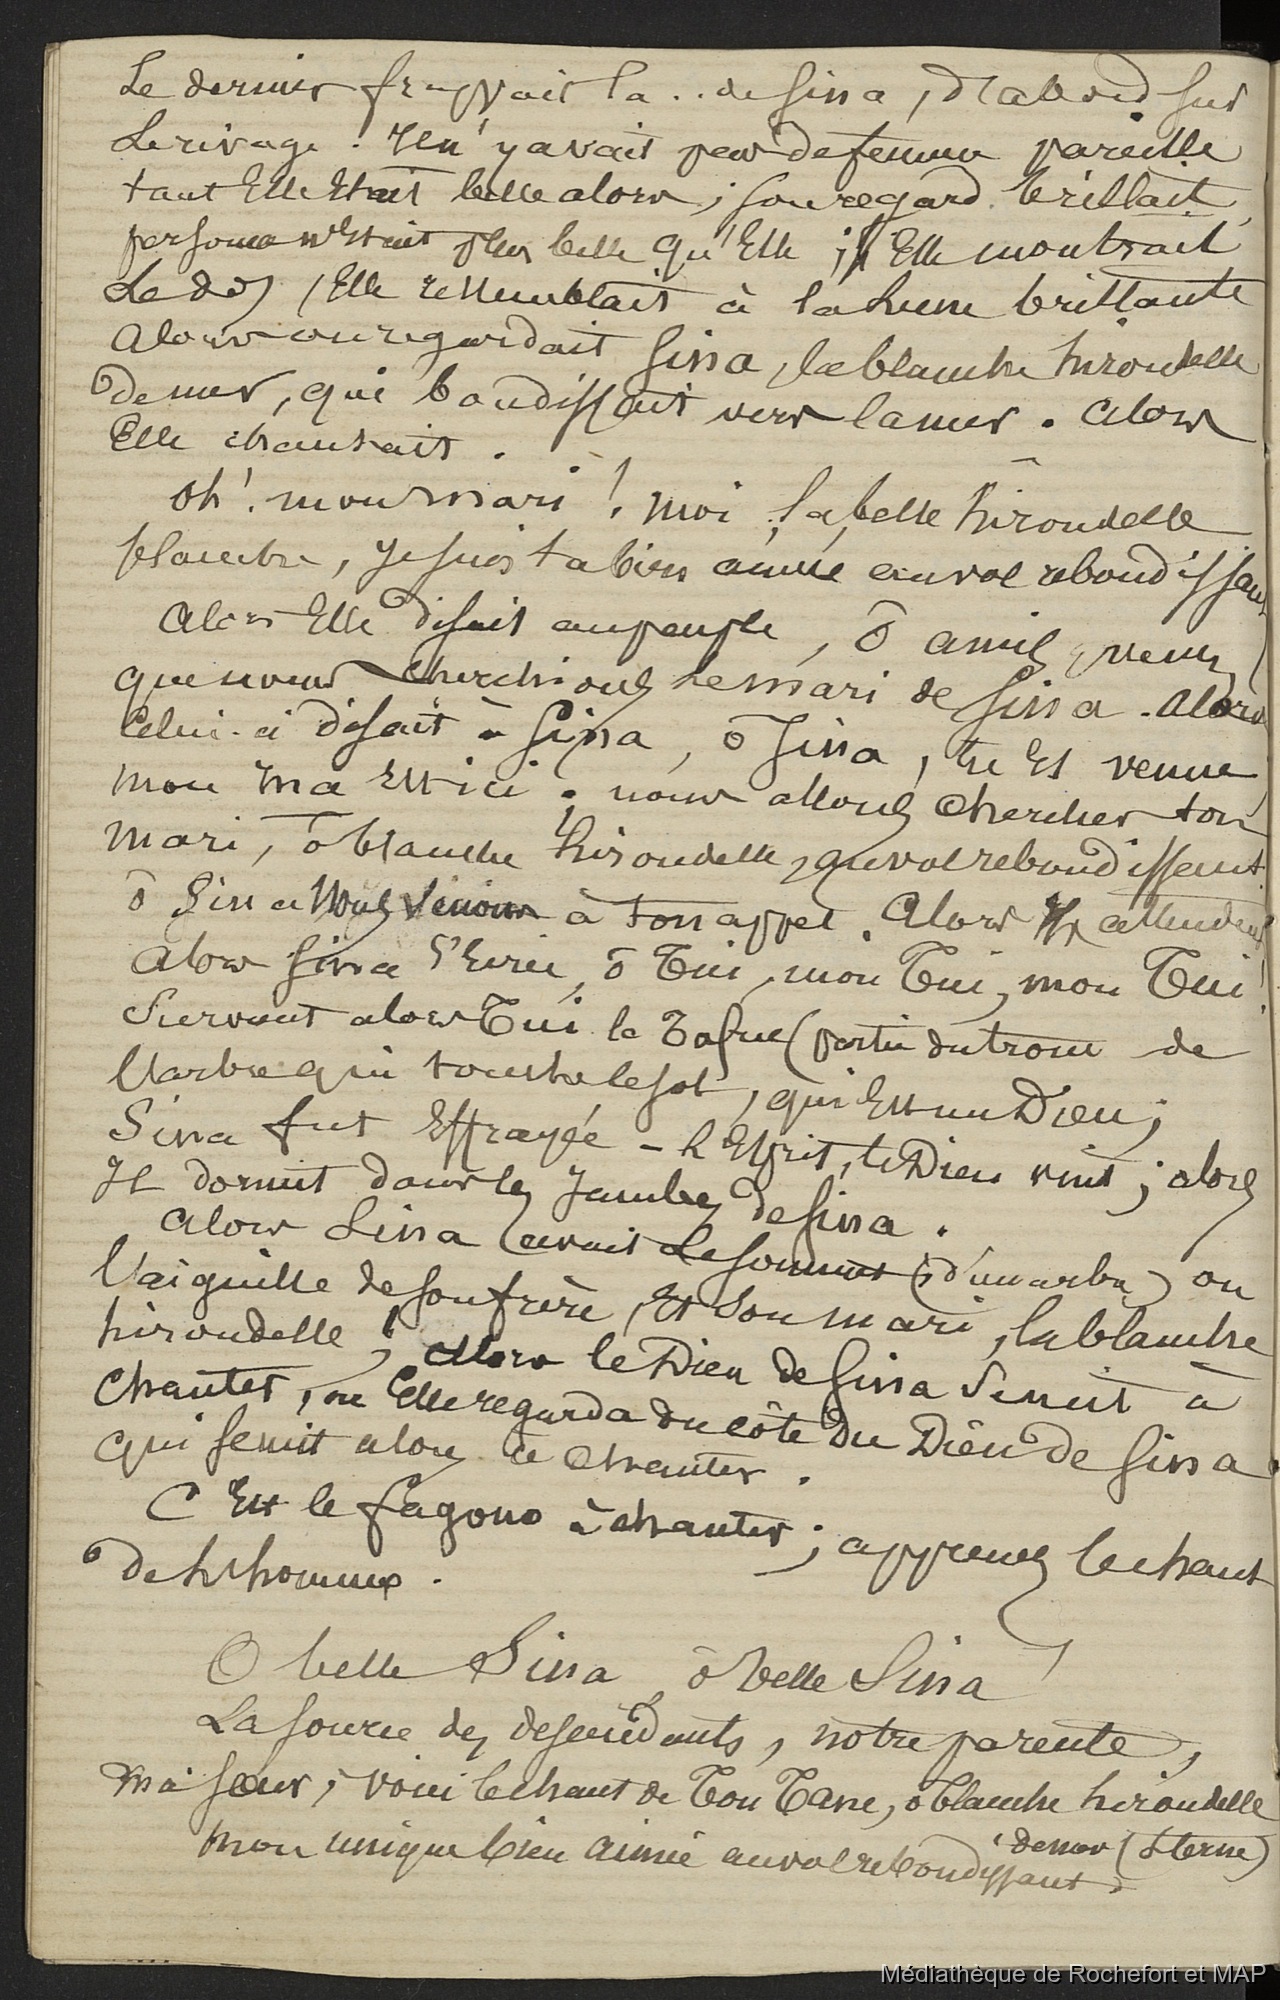 Le dernier frappait la .. de Sina, d'abord sur
le rivage. Il n'y avait pas de femme pareille
tant Elle Etait belle alors ; son regard brillait,
personne n'Etait plus belle qu'Elle ; si Elle montrait
Le dos, Elle ressemblait à la lune brillante
alors on regardait Sina, la blanche hirondelle
de mer, qui bondissait vers la mer. Alors
Elle chantait.
Oh! mon mari! moi la belle hirondelle
blanche, je suis ta bien aimée au vol rebondissant
Alors Elle disait au peuple, ô amis, venez,
que nous cherchions le mari de Sina. Alors
Celui-ci disait à Sina, ô Sina, tu Es venue
mon ma Est ici ; nous allons chercher ton
mari, ô blanche hirondelle, au vol rebondissant.
ô Sina Nous venions à ton appel. Alors
Alors Sina s'Ecrie, ô Tui, mon Tui, mon Tui!
Survint alors Tui le (partie du tronc de
l'arbre qui touche le sol, qui Est un Dieu ;
Sina fut Effrayée - l'Esprit, le Dieu vint ; alors
Il dormit dans les jambes de Sina.
Alors Sina avait le sommet (d'un arbre) ou
l'aiguille de son frère, Et son mari, la blanche
hirondelle ; alors le Dieu de Sina se mit à
chanter, ou Elle regarda du côté du Dieu de Sina
qui se mit alors à chanter.
C'Est le fagono à chanter ; apprenez le chant
de l'homme.
O belle Sina, ô belle Sina!
La source des descendants, notre parente,
ma sœur, voici le chant de ton Tane, ô blanche hirondelle
de mer (sterne)
mon unique bien aimée au vol rebondissant.
Médiathèque de Rochefort et MAP